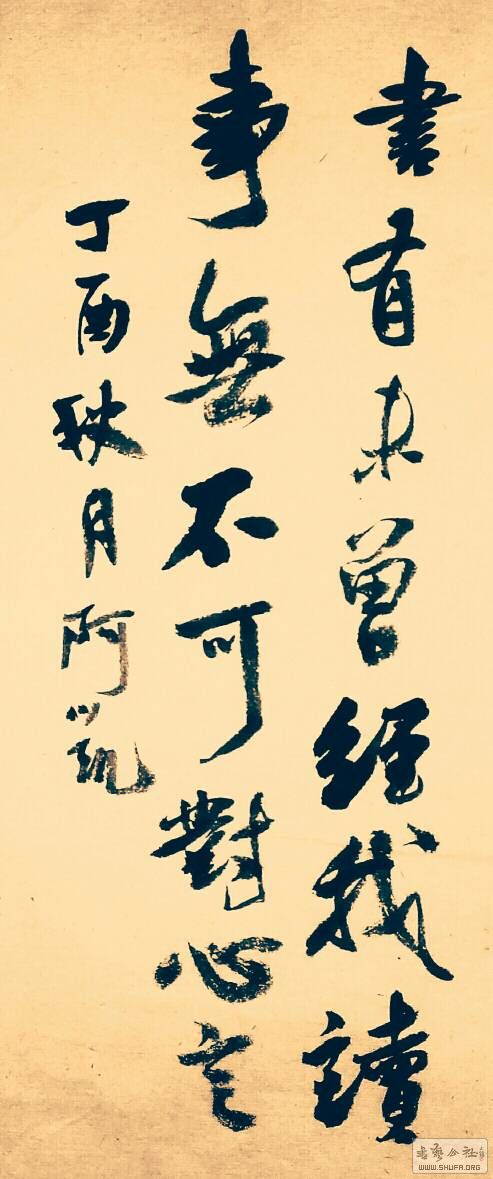 書有未曾經我讀
事無不可對心言
丁酉秋月阿凱
書藝公社
WWW.SHUFA.ORG